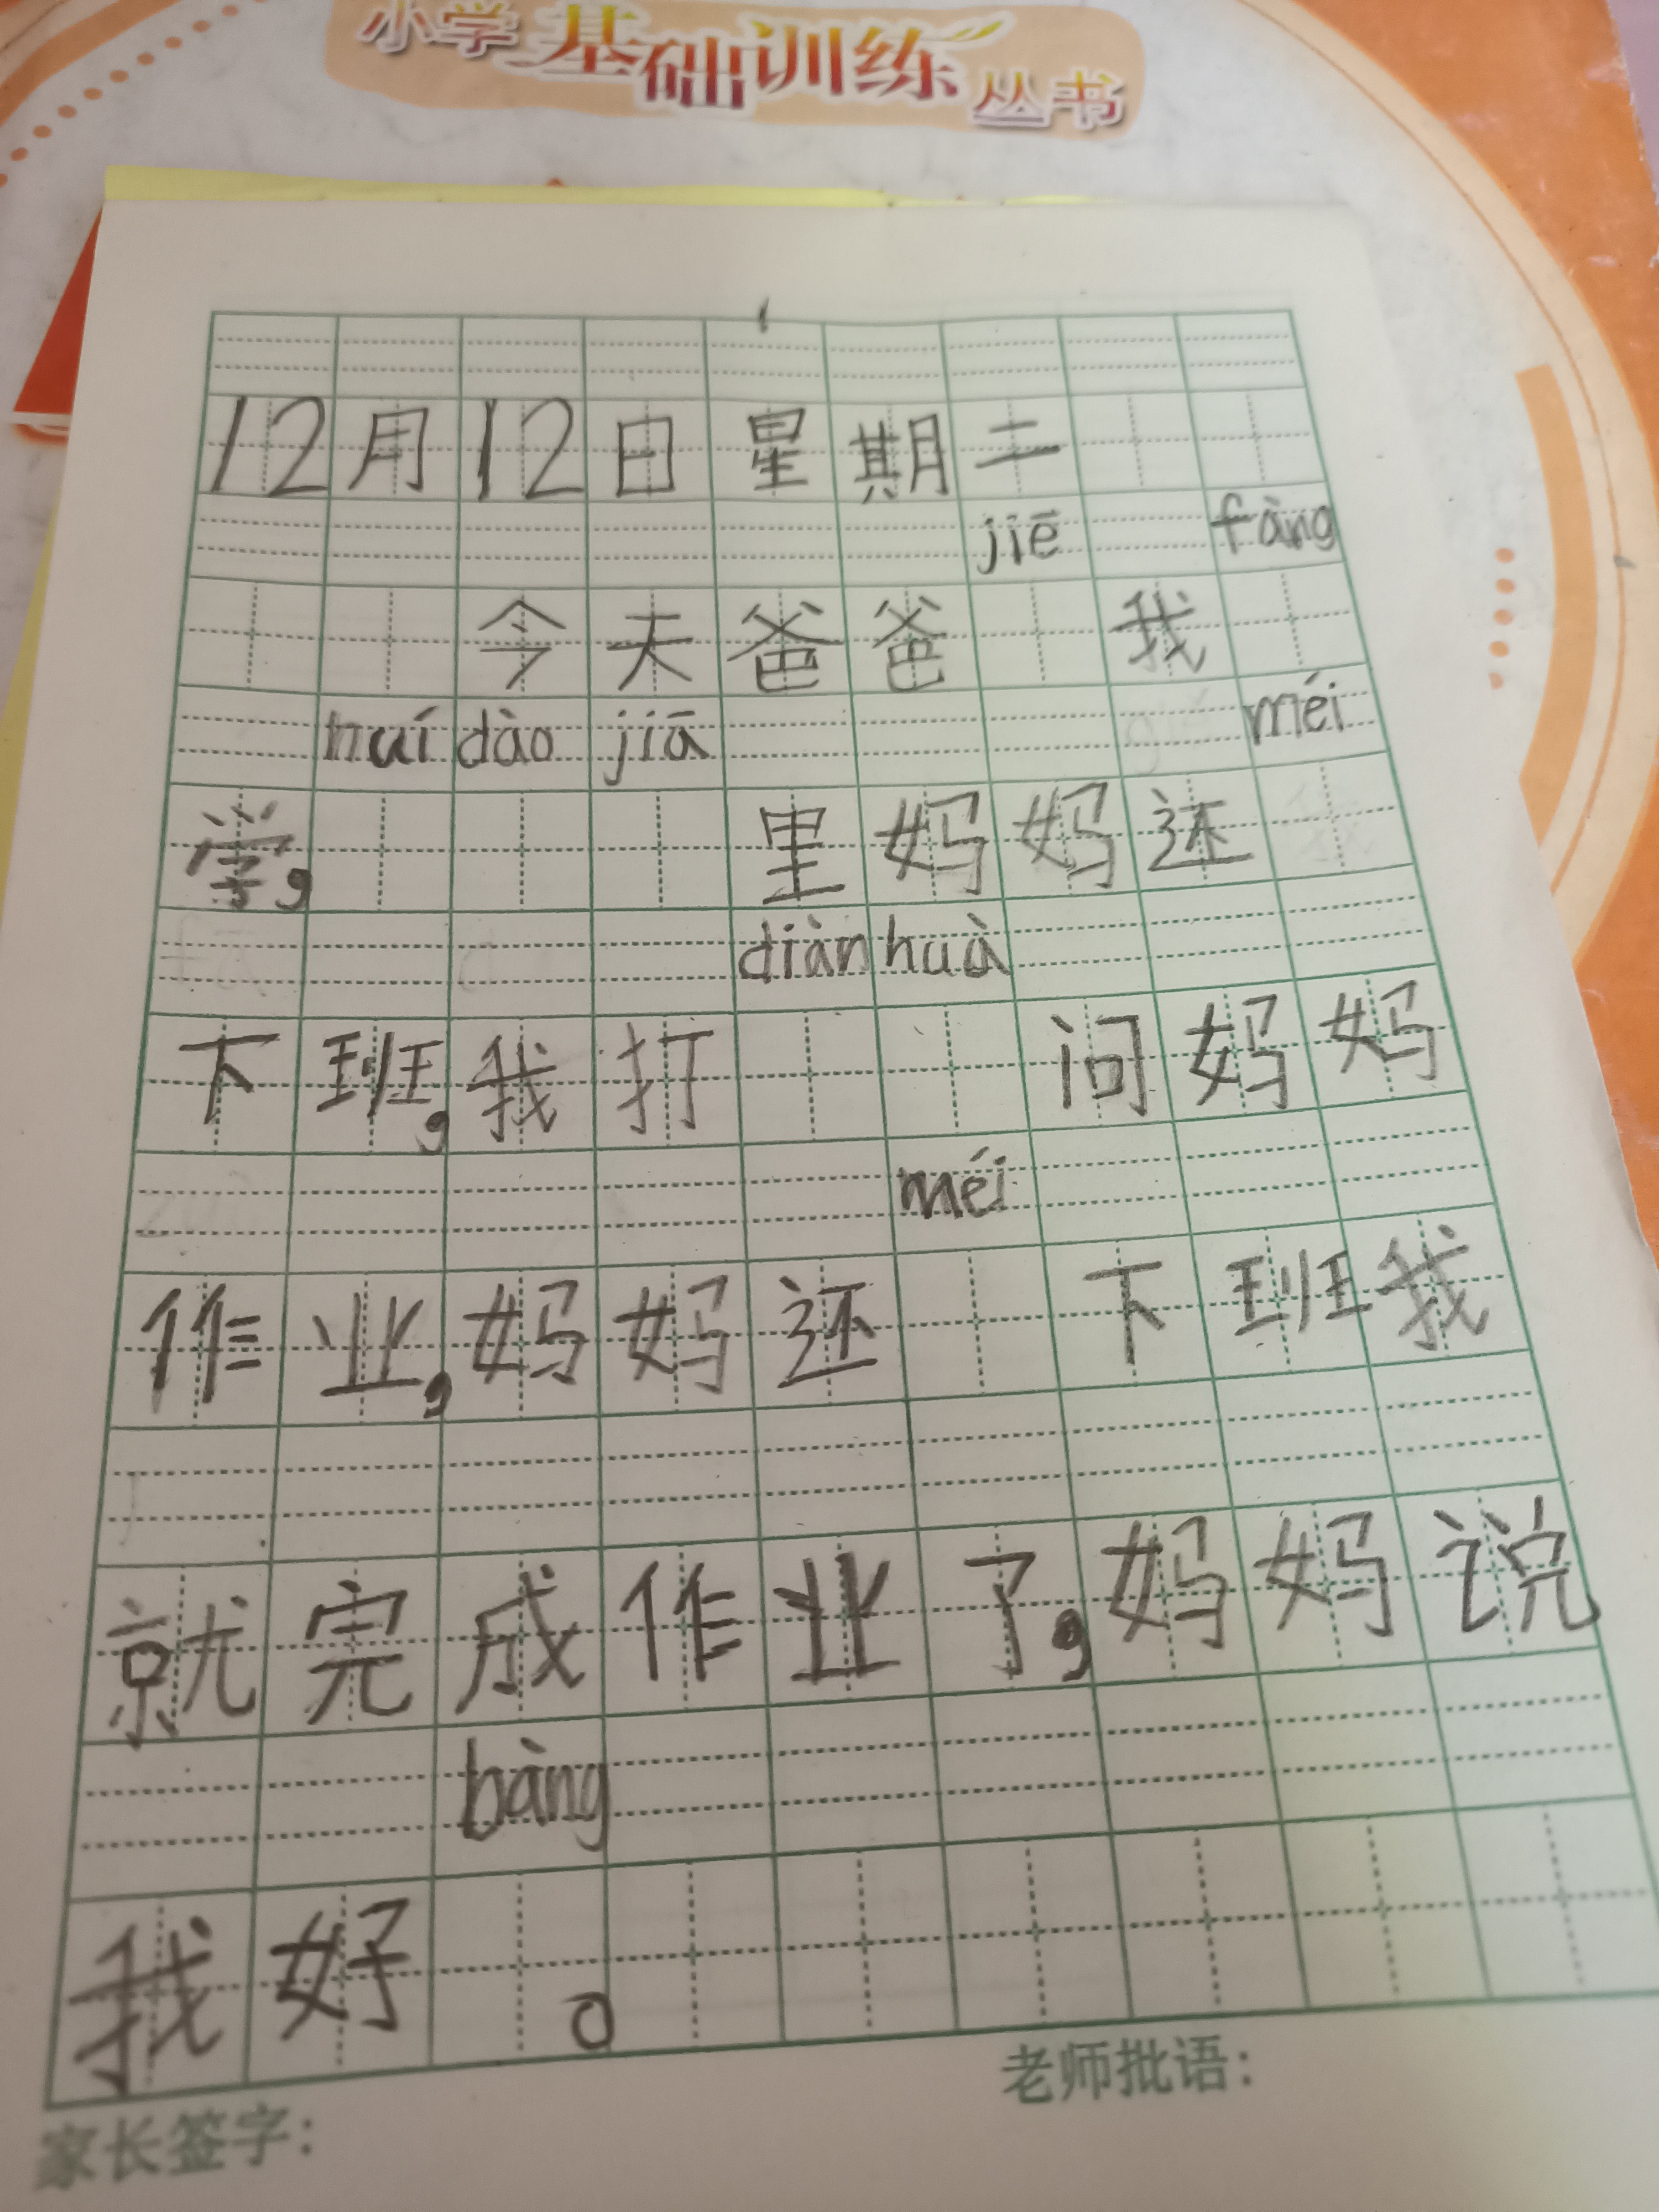 小学基础训练丛书
12月12日星期二
jiē fàng
今天爸爸 我
huí dào jiā méi
学, 里妈妈还
diàn huà
下班,我打 问妈妈
méi
作业,妈妈还 下班我
就完成作业了,妈妈说
bàng
我好 。
家长签字: 老师批语: